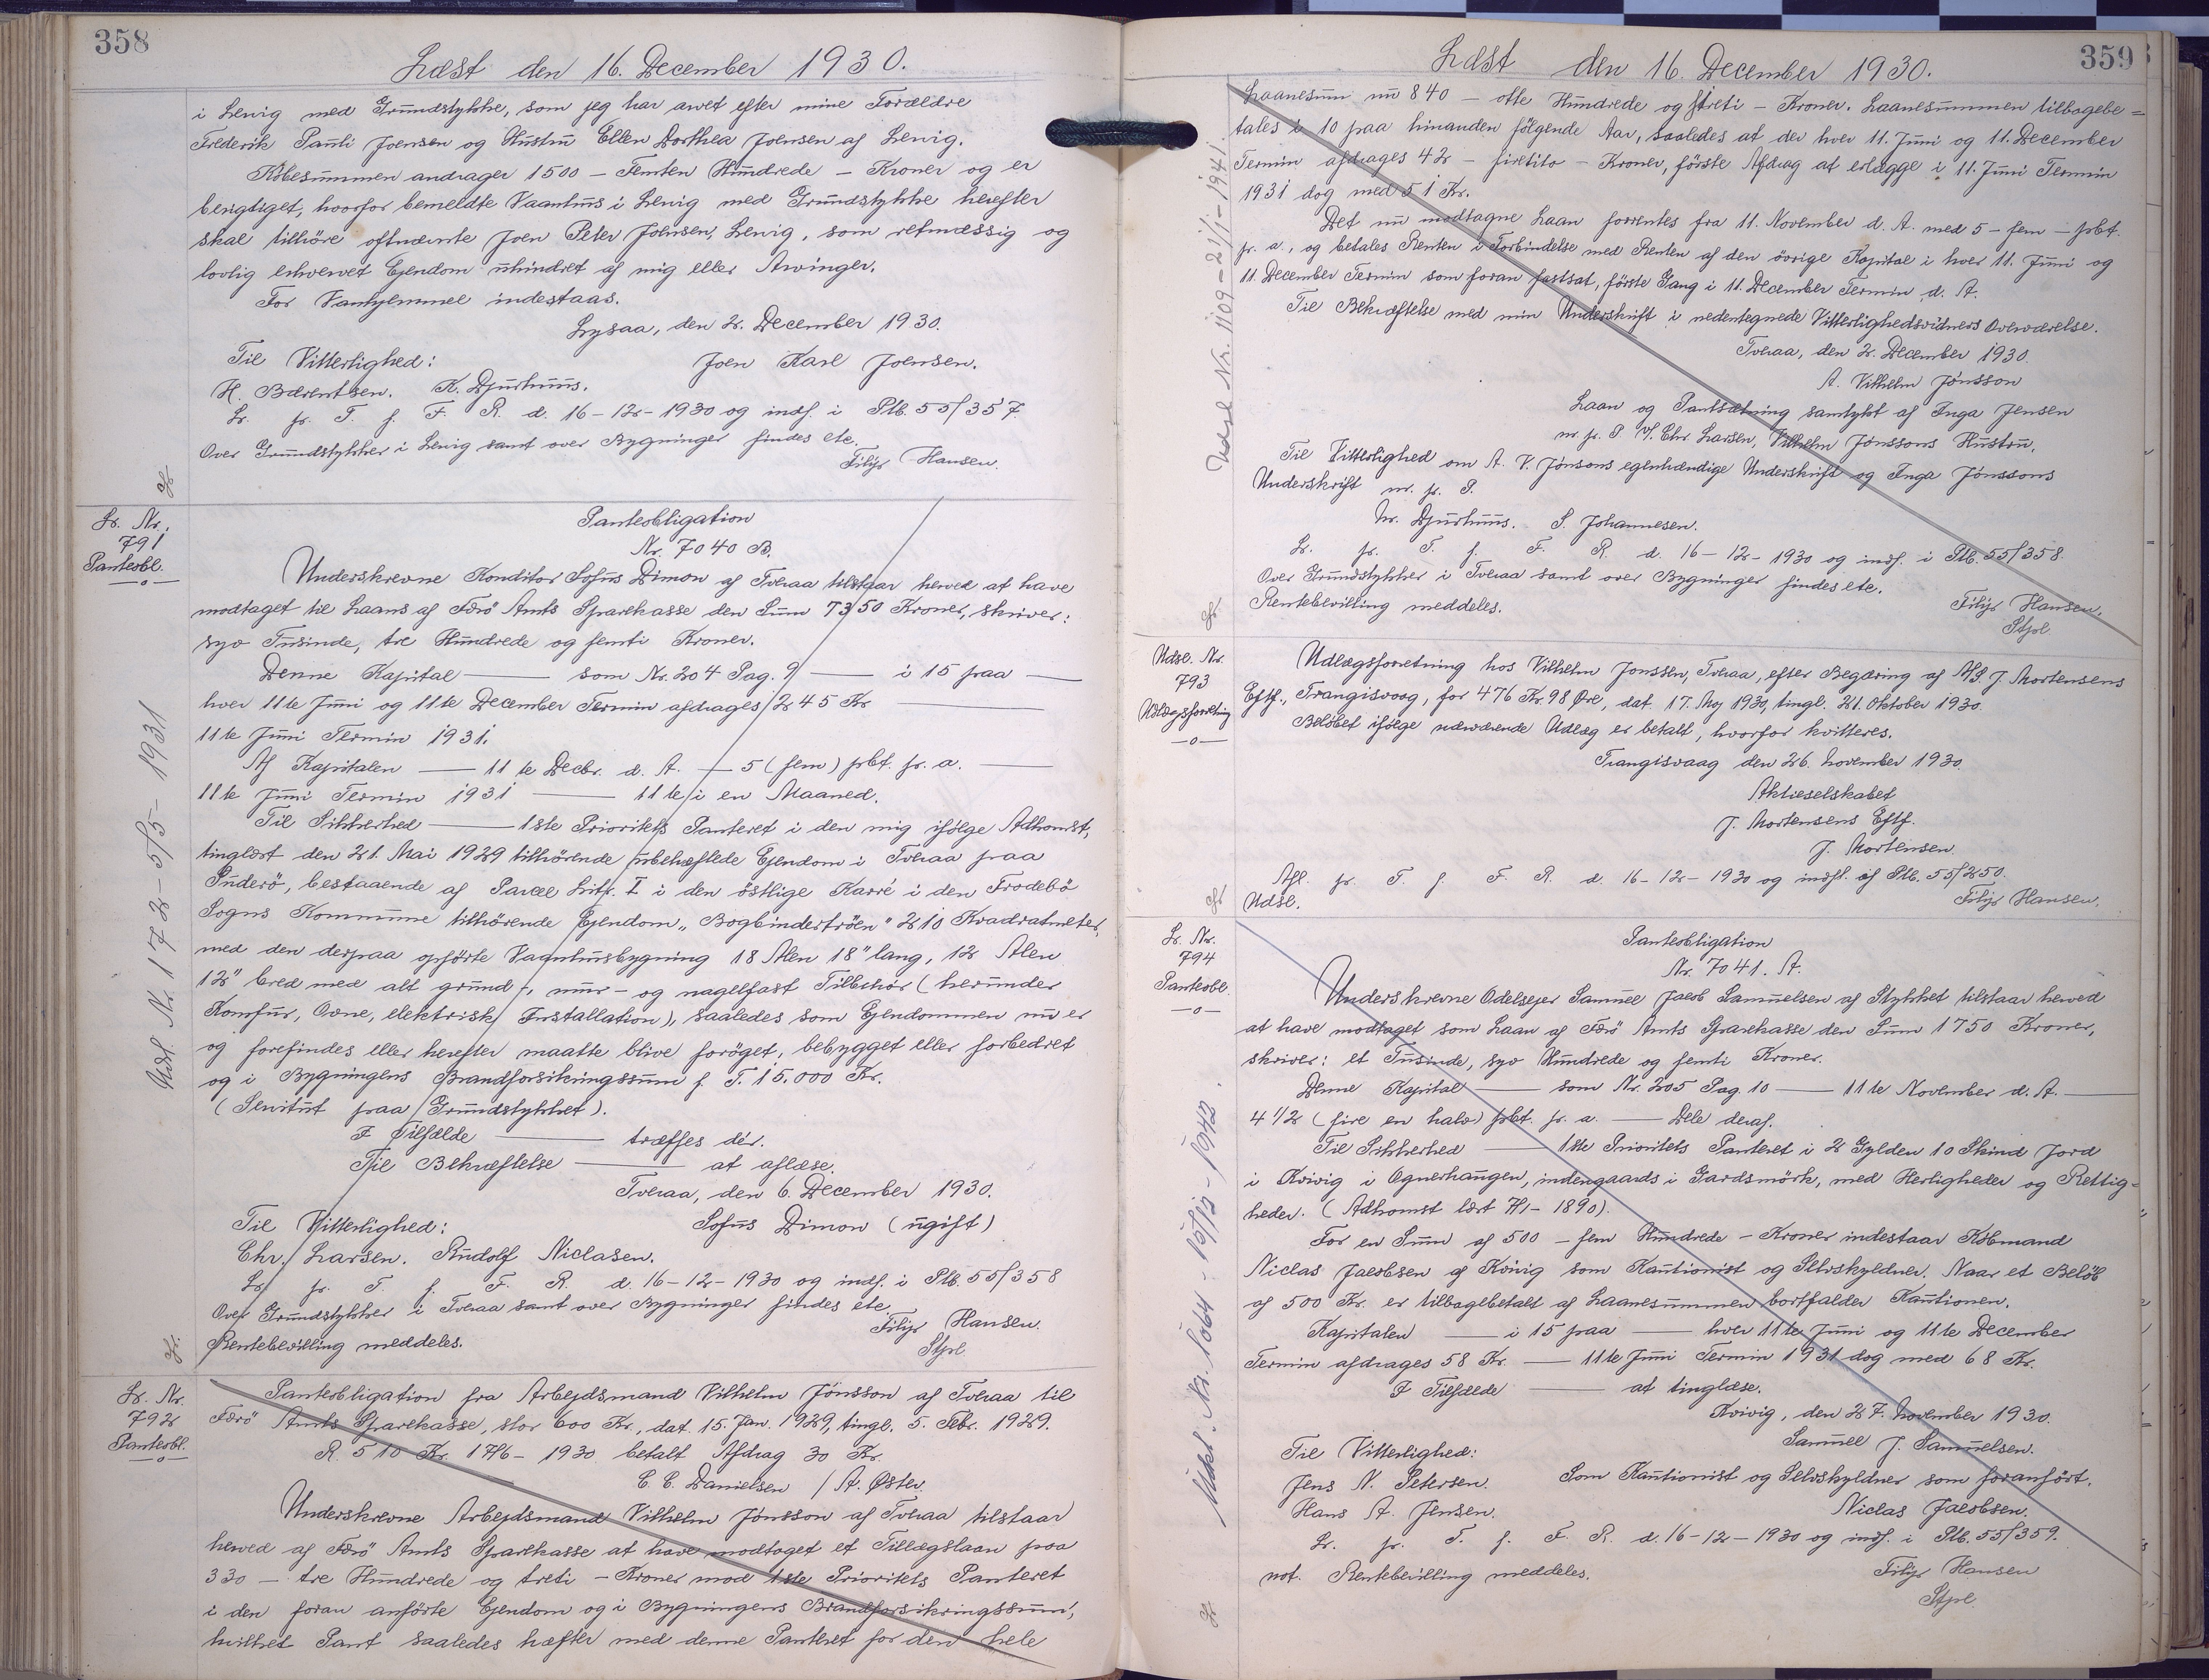 358
Læst den 16. December 1930.
i Lervig med Grundstykke, som jeg har arvet efter mine Forældre
Frederik Pauli Joensen og Hustru Ellen Dorthea Joensen af Lervig.
Købesummen andrager 1500 – Femten Hundrede – Kroner og er
berigtiget, hvorfor bemeldte Vaanhus i Lervig med Grundstykke herefter
skal tilhöre oftnævnte Joen Peter Joensen, Lervig, som retmæssig og
lovlig erhvervet Ejendom uhindret af mig eller Arvinger.
For Vanhjemmel indestaas.
Lysaa, den 2. December 1930.
Til Vitterlighed: Joen Karl Joensen.
H. Bærentsen. K. Djurhuus.
Lr. pr. T. f. F. R. d. 16-12-1930 og indf. i Ptb. 55/357.
Over Grundstykker i Lervig samt over Bygninger findes etc.
Filip Hansen.
Lr. Nr.
791
Panteobl.
—o—
Udsl. Nr. 172-5/5-1931
Panteobligation
Nr. 7040 B.
Underskrevne Konditor Sofus Dimon af Tveraa tilstaar herved at have
modtaget til Laans af Færö Amts Sparekasse den Sum 7350 Kroner, skriver:
syv Tusinde, tre Hundrede og femti Kroner.
Denne Kapital — som Nr. 204 Pag. 9 — i 15 paa —
hver 11te Juni og 11te December Termin afdrages 245 Kr. —
11te Juni Termin 1931.
Af Kapitalen — 11te Decbr. d. A. — 5 (fem) pCt. pr. a. —
11te Juni Termin 1931 — 11te i en Maaned.
Til Sikkerhed — 1ste Prioritets Panteret i den mig ifølge Adkomst,
tinglæst den 21. Mai 1929 tilhörende ubehæftede Ejendom i Tveraa paa
Suderö, bestaaende af Parcel Litr. I i den östlige Karré i den Frodebö
Sogns Kommune tilhörende Ejendom „Bogbindertröen" 210 Kvadratmeter,
med den derpaa opförte Vaanhusbygning 18 Alen 18" lang, 12 Alen
12" bred med alt grund-, mur- og nagelfast Tilbehör (herunder
Komfur, Ovne, elektrisk Installation), saaledes som Ejendommen nu er
og forefindes eller herefter maatte blive foröget, bebygget eller forbedret
og i Bygningens Brandforsikringssum p. T. 15.000 Kr.
(Servitut paa Grundstykket).
I Tilfælde — træffes dér.
Til Bekræftelse — at aflæse.
Tveraa, den 6. December 1930.
Til Vitterlighed: Sofus Dimon (ugift)
Chr. Larsen. Rudolf Niclasen.
Lr. pr. T. f. F. R. d. 16-12-1930 og indf. i Ptb. 55/358
Over Grundstykker i Tveraa samt over Bygninger findes etc.
Filip Hansen.
Rentebevilling meddeles.
Stpl.
Lr. Nr.
792
Panteobl.
—o—
Panteobligation fra Arbejdsmand Vilhelm Jönsson af Tveraa til
Færö Amts Sparekasse, stor 600 Kr., dat. 15. Jan. 1929, tingl. 5. Febr. 1929.
R. 510 Kr. 17/6-1930 betalt Afdrag 30 Kr.
C. C. Danielsen / A. Øster.
Underskrevne Arbejdsmand Vilhelm Jönsson af Tveraa tilstaar
herved af Færö Amts Sparekasse at have modtaget et Tillægslaan paa
330 – tre Hundrede og treti – Kroner mod 1ste Prioritets Panteret
i den foran anförte Ejendom og i Bygningens Brandforsikringssum,
hvilket Pant saaledes hæfter med denne Panteret for den hele
359
Læst den 16. December 1930.
Udsl. Nr. 1109-21/1-1941
Laanesum nu 840 – otte Hundrede og fireti – Kroner. Laanesummen tilbagebe=
tales i 10 paa hinanden følgende Aar, saaledes at der hver 11. Juni og 11. December
Termin afdrages 42 – firetito – Kroner, første Afdrag at erlægge i 11. Juni Termin
1931 dog med 51 Kr.
Det nu modtagne Laan forrentes fra 11. November d. A. med 5 – fem – pCt.
pr. a., og betales Renten i Forbindelse med Renten af den övrige Kapital i hver 11. Juni og
11. December Termin som foran fastsat, første Gang i 11. December Termin d. A.
Til Bekræftelse med min Underskrift i nedentegnede Vitterlighedsvidners Overværelse.
Tveraa, den 2. December 1930.
A. Vilhelm Jönsson
Laan og Pantsætning samtykt af Inga Jensen
m. p. P. V/ Chr. Larsen, Vilhelm Jönssons Hustru.
Til Vitterlighed om A. V. Jönsons egenhændige Underskrift og Inga Jönssons
Underskrift m. p. P.
Nr. Djurhuus. S. Johannesen.
Lr. pr. T. f. F. R. d. 16-12-1930 og indf. i Ptb. 55/358.
Over Grundstykker i Tveraa samt over Bygninger findes etc.
Rentebevilling meddeles.
Filip Hansen.
Stpl
Udsl. Nr.
793
Udlægsforretning
—o—
Udlægsforretning hos Vilhelm Jonssen, Tveraa, efter Begæring af A/S. J. Mortensens
Eftf., Trangisvaag, for 476 Kr. 98 Øre, dat. 17. Maj 1930, tingl. 21. Oktober 1930.
Belöbet ifølge nærværende Udlæg er betalt, hvorfor kvitteres.
Trangisvaag den 26. November 1930.
Aktieselskabet
J. Mortensens Eftf.
J. Mortensen.
Afl. pr. T. f. F. R. d. 16-12-1930 og indfl. af Ptb. 55/250.
Udsl.
Filip Hansen.
Lr. Nr.
794
Panteobl.
—o—
Panteobligation
Nr. 7041. A.
Underskrevne Odelsejer Samuel Jacob Samuelsen af Stykket tilstaar herved
at have modtaget som Laan af Færö Amts Sparekasse den Sum 1750 Kroner,
skriver: et Tusinde, syv Hundrede og femti Kroner.
Denne Kapital — som Nr. 205 Pag. 10 — 11te November d. A. —
4 1/2 (fire en halv) pCt. pr. a. — Dele deraf.
Til Sikkerhed — 1ste Prioritets Panteret i 2 Gylden 10 Skind Jord
i Kvivig i Ognerhaugen, indengaards i Gardsmörk, med Herligheder og Rettig=
heder. (Adkomst læst 7/1-1890).
For en Sum af 500 – fem Hundrede – Kroner indestaar Købmand
Niclas Jacobsen af Kvivig som Kautionist og Selvskyldner. Naar et Belöb
af 500 Kr. er tilbagebetalt af Laanesummen bortfalder Kautionen.
Kapitalen — i 15 paa — hver 11te Juni og 11te December
Termin afdrages 58 Kr. — 11te Juni Termin 1931 dog med 68 Kr.
I Tilfælde — at tinglæse.
Kvivig, den 27. November 1930.
Samuel J. Samuelsen.
Til Vitterlighed:
Jens N. Petersen. Som Kautionist og Selvskyldner som foranfört.
Hans A. Jensen. Niclas Jacobsen.
Lr. pr. T. f. F. R. d. 16-12-1930 og indf. i Ptb. 55/359.
not. Rentebevilling meddeles. Filip Hansen
Stpl.